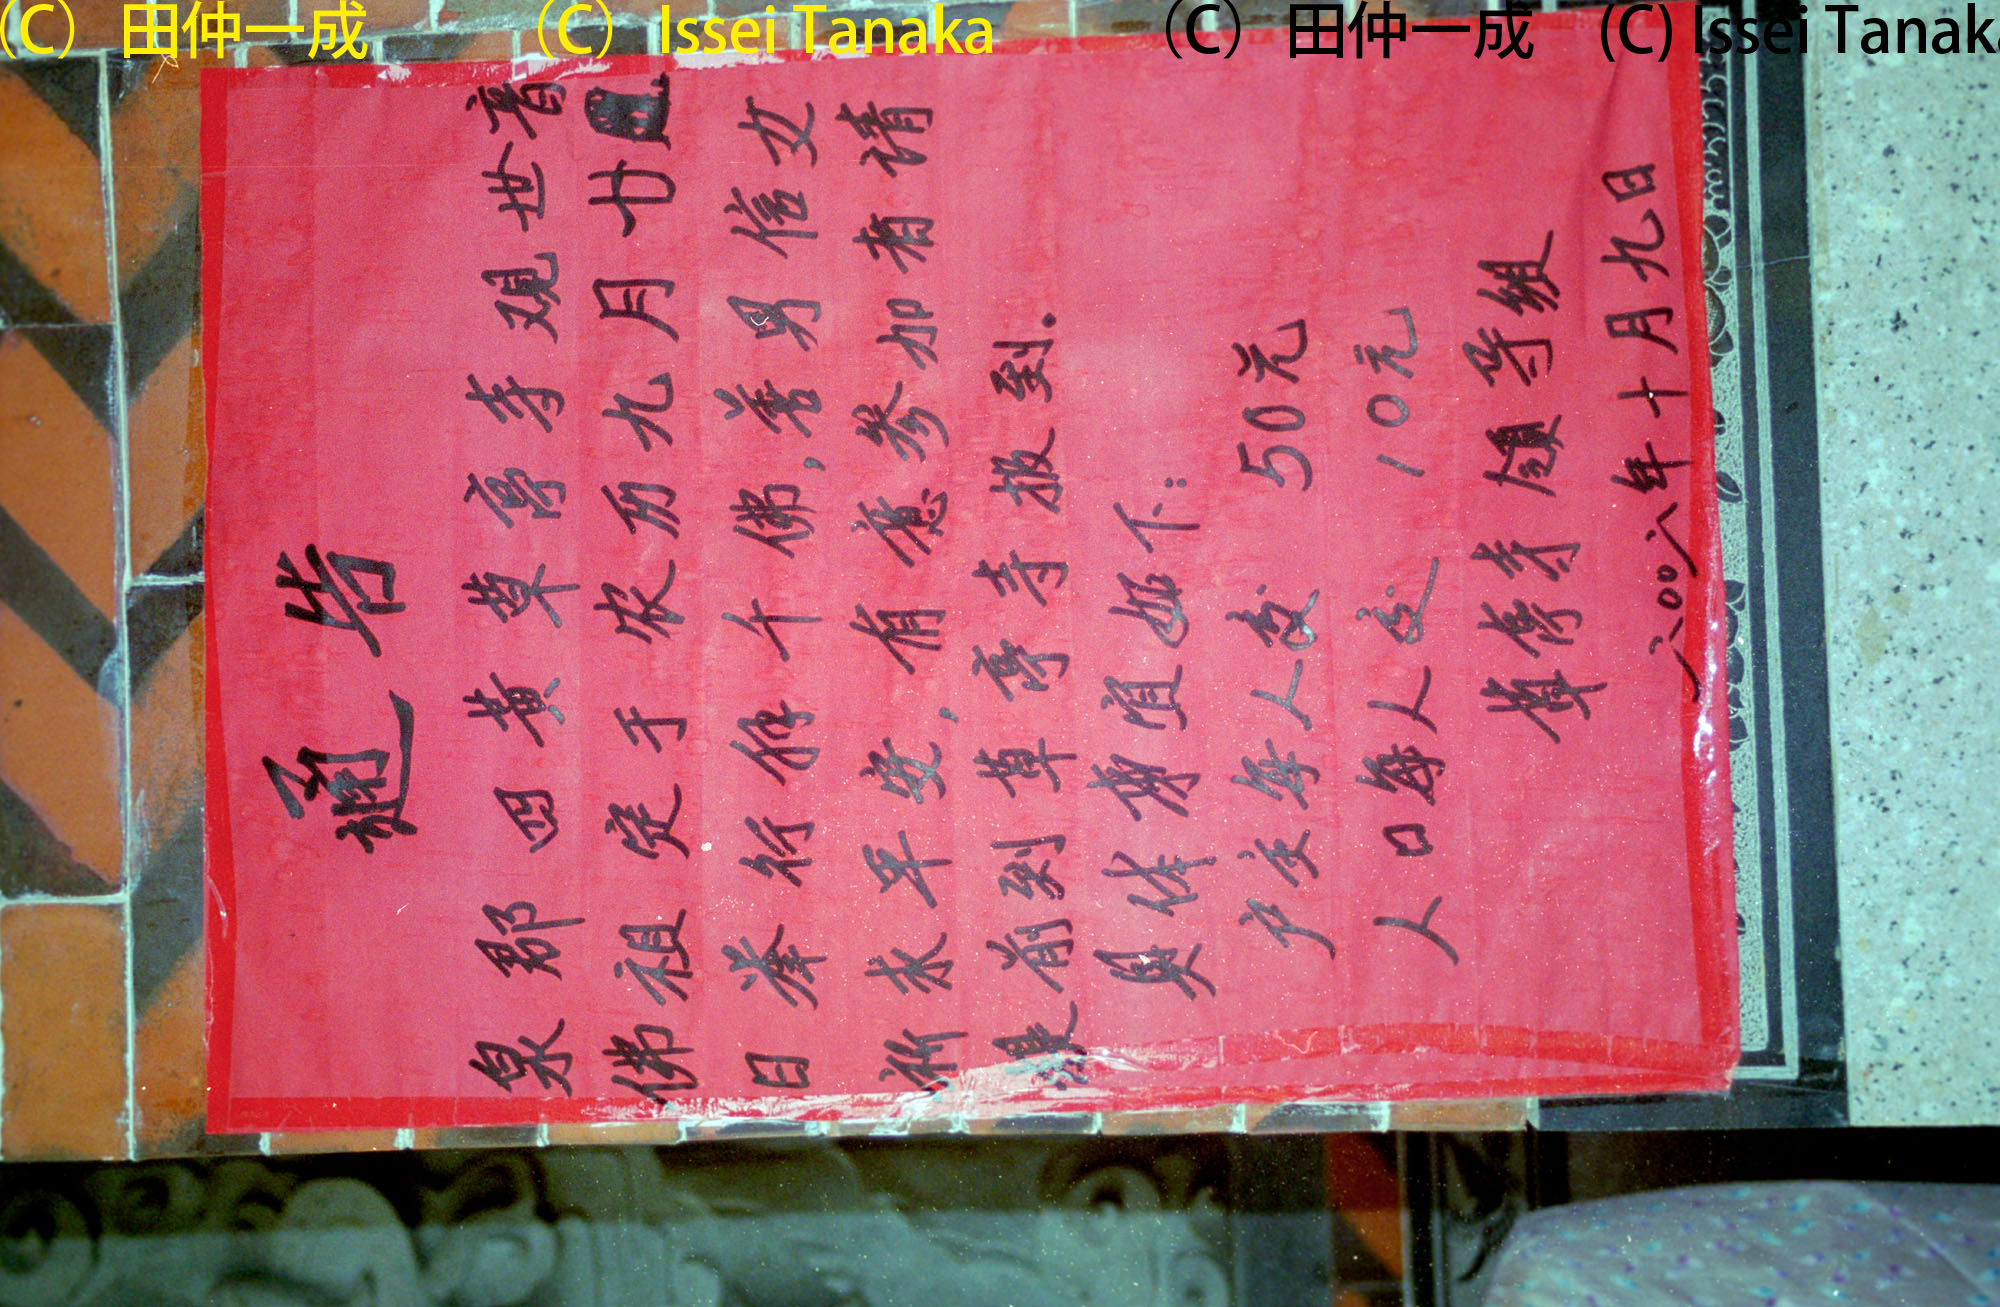 (C) 田仲一成 (C) Issei Tanaka (C) 田仲一成 (C) Issei Tanaka
通告
泉郡四黄草亭寺观世音
佛祖定于农历九月廿
日举行拜千佛，善男信女
祈求平安，有意参加者请
提前到草亭寺报到。
具体缘值如下：
户主每人交 50元
人口每人交 10元
草亭寺领导组
二00八年十月九日